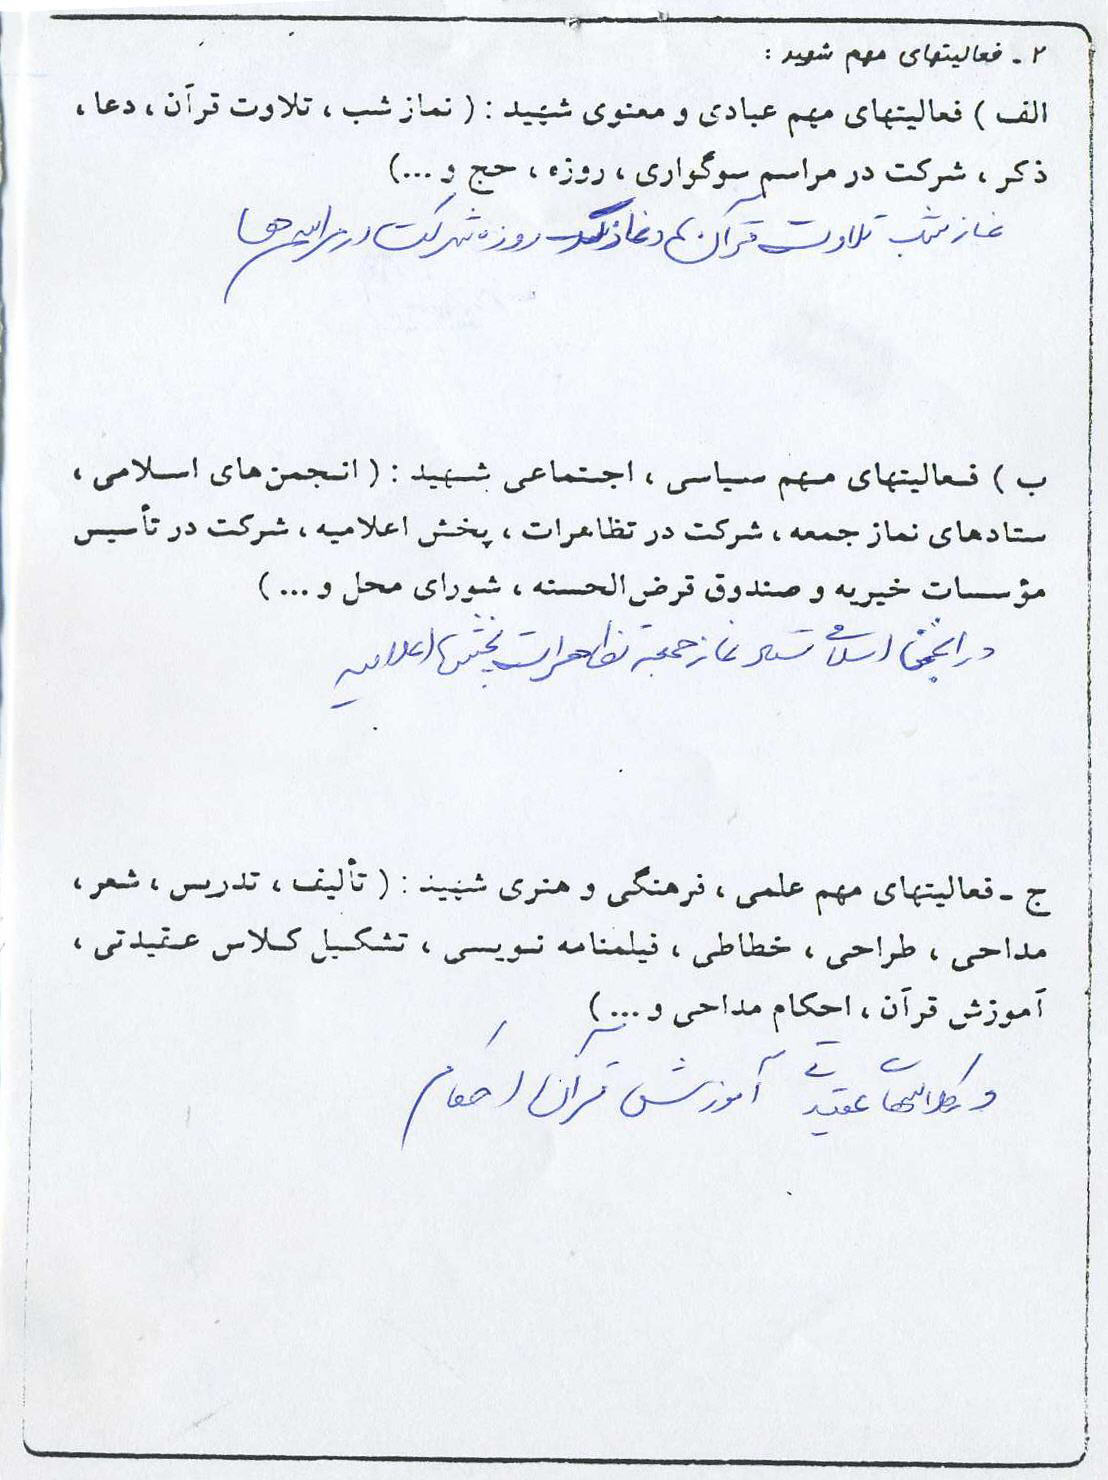 ۲ ـ فعالیتهای مهم شهید :
الف ) فعالیتهای مهم عبادی و معنوی شهید : ( نماز شب ، تلاوت قرآن ، دعا ،
ذکر ، شرکت در مراسم سوگواری ، روزه ، حج و ...)
نماز شب تلاوت قرآن روزه شرکت در مراسم ها
ب ) فعالیتهای مهم سیاسی ، اجتماعی شهید : ( انجمن‌های اسلامی ،
ستادهای نماز جمعه ، شرکت در تظاهرات ، پخش اعلامیه ، شرکت در تأسیس
مؤسسات خیریه و صندوق قرض‌الحسنه ، شورای محل و ... )
در انجمن اسلامی ستاد نماز جمعه تظاهرات پخش اعلامیه
ج ـ فعالیتهای مهم علمی ، فرهنگی و هنری شهید : ( تألیف ، تدریس ، شعر ،
مداحی ، طراحی ، خطاطی ، فیلمنامه نویسی ، تشکیل کلاس عقیدتی ،
آموزش قرآن ، احکام مداحی و ... )
در کلاسهای عقیدتی آموزش قرآن احکام